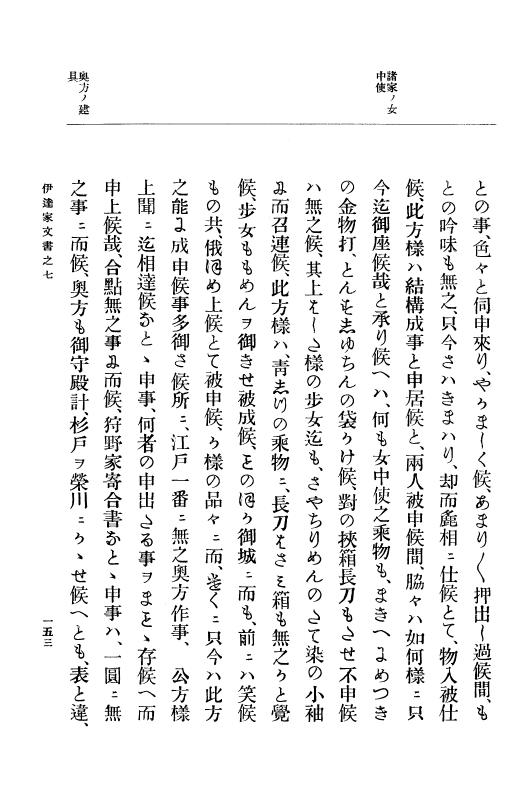 諸家ノ女
中使
奥方ノ建
具
との事、色々と伺申來り、やうましく候、あまり〳〵押出し過候間、も
との吟味も無之、只今さハきまハり、却而麁相ニ仕候とて、物入被仕
候、此方様ハ結構成事と申居候と、兩人被申候間、脇々ハ如何様ニ只
今迄御座候哉と承り候へハ、何も女中使之乘物も、まきへよめつき
の金物打、とんもゑゆちんの袋うけ候、對の挾箱長刀もさせ不申候
ハ無之候、其上はしさ様の歩女迄も、さやちりめんのさて染の小袖
よ而召連候、此方様ハ、青ゑりの乘物ニ、長刀はさミ箱も無之うと覺
候、歩女ももめんヲ御きせ被成候、その何う御城ニ而も、前ニハ笑候
もの共、俄何め上候とて被申候、う様の品々ニ而、悉くニ只今ハ此方
之能よ成申候事多御さ候所ニ、江戸一番ニ無之奥方作事、 公方様
上聞ニ迄相達候なとゝ申事、何者の申出さる事ヲまとゝ存候へ而
申上候哉、合點無之事よ而候、狩野家寄合書なとゝ申事ハ、一圓ニ無
之事ニ而候、奥方も御守殿計、杉戸ヲ榮川ニうゝせ候へとも、表と違、
伊達家文書之七
一五三